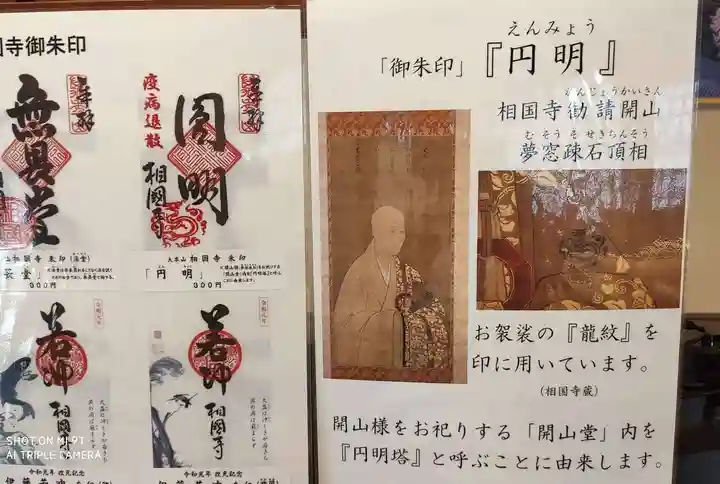 国寺御朱印
奉拝
無畏堂
無畏堂」
300円
奉拝
疫病退散
圓明
相國寺
大本山 相国寺 朱印
「円明」
300円
若冲
相國寺
令和元年 改元記念
若冲
相國寺
令和元年 改元記念
えんみょう
「御朱印」『円明』
かんじょうかいさん
相国寺勧請開山
むそうそせきちんそう
夢窓疎石頂相
お袈裟の『龍紋』を
印に用いています。
(相国寺蔵)
開山様をお祀りする「開山堂」内を
『円明塔』と呼ぶことに由来します。
SHOT ON MI 9T
AI TRIPLE CAMERA